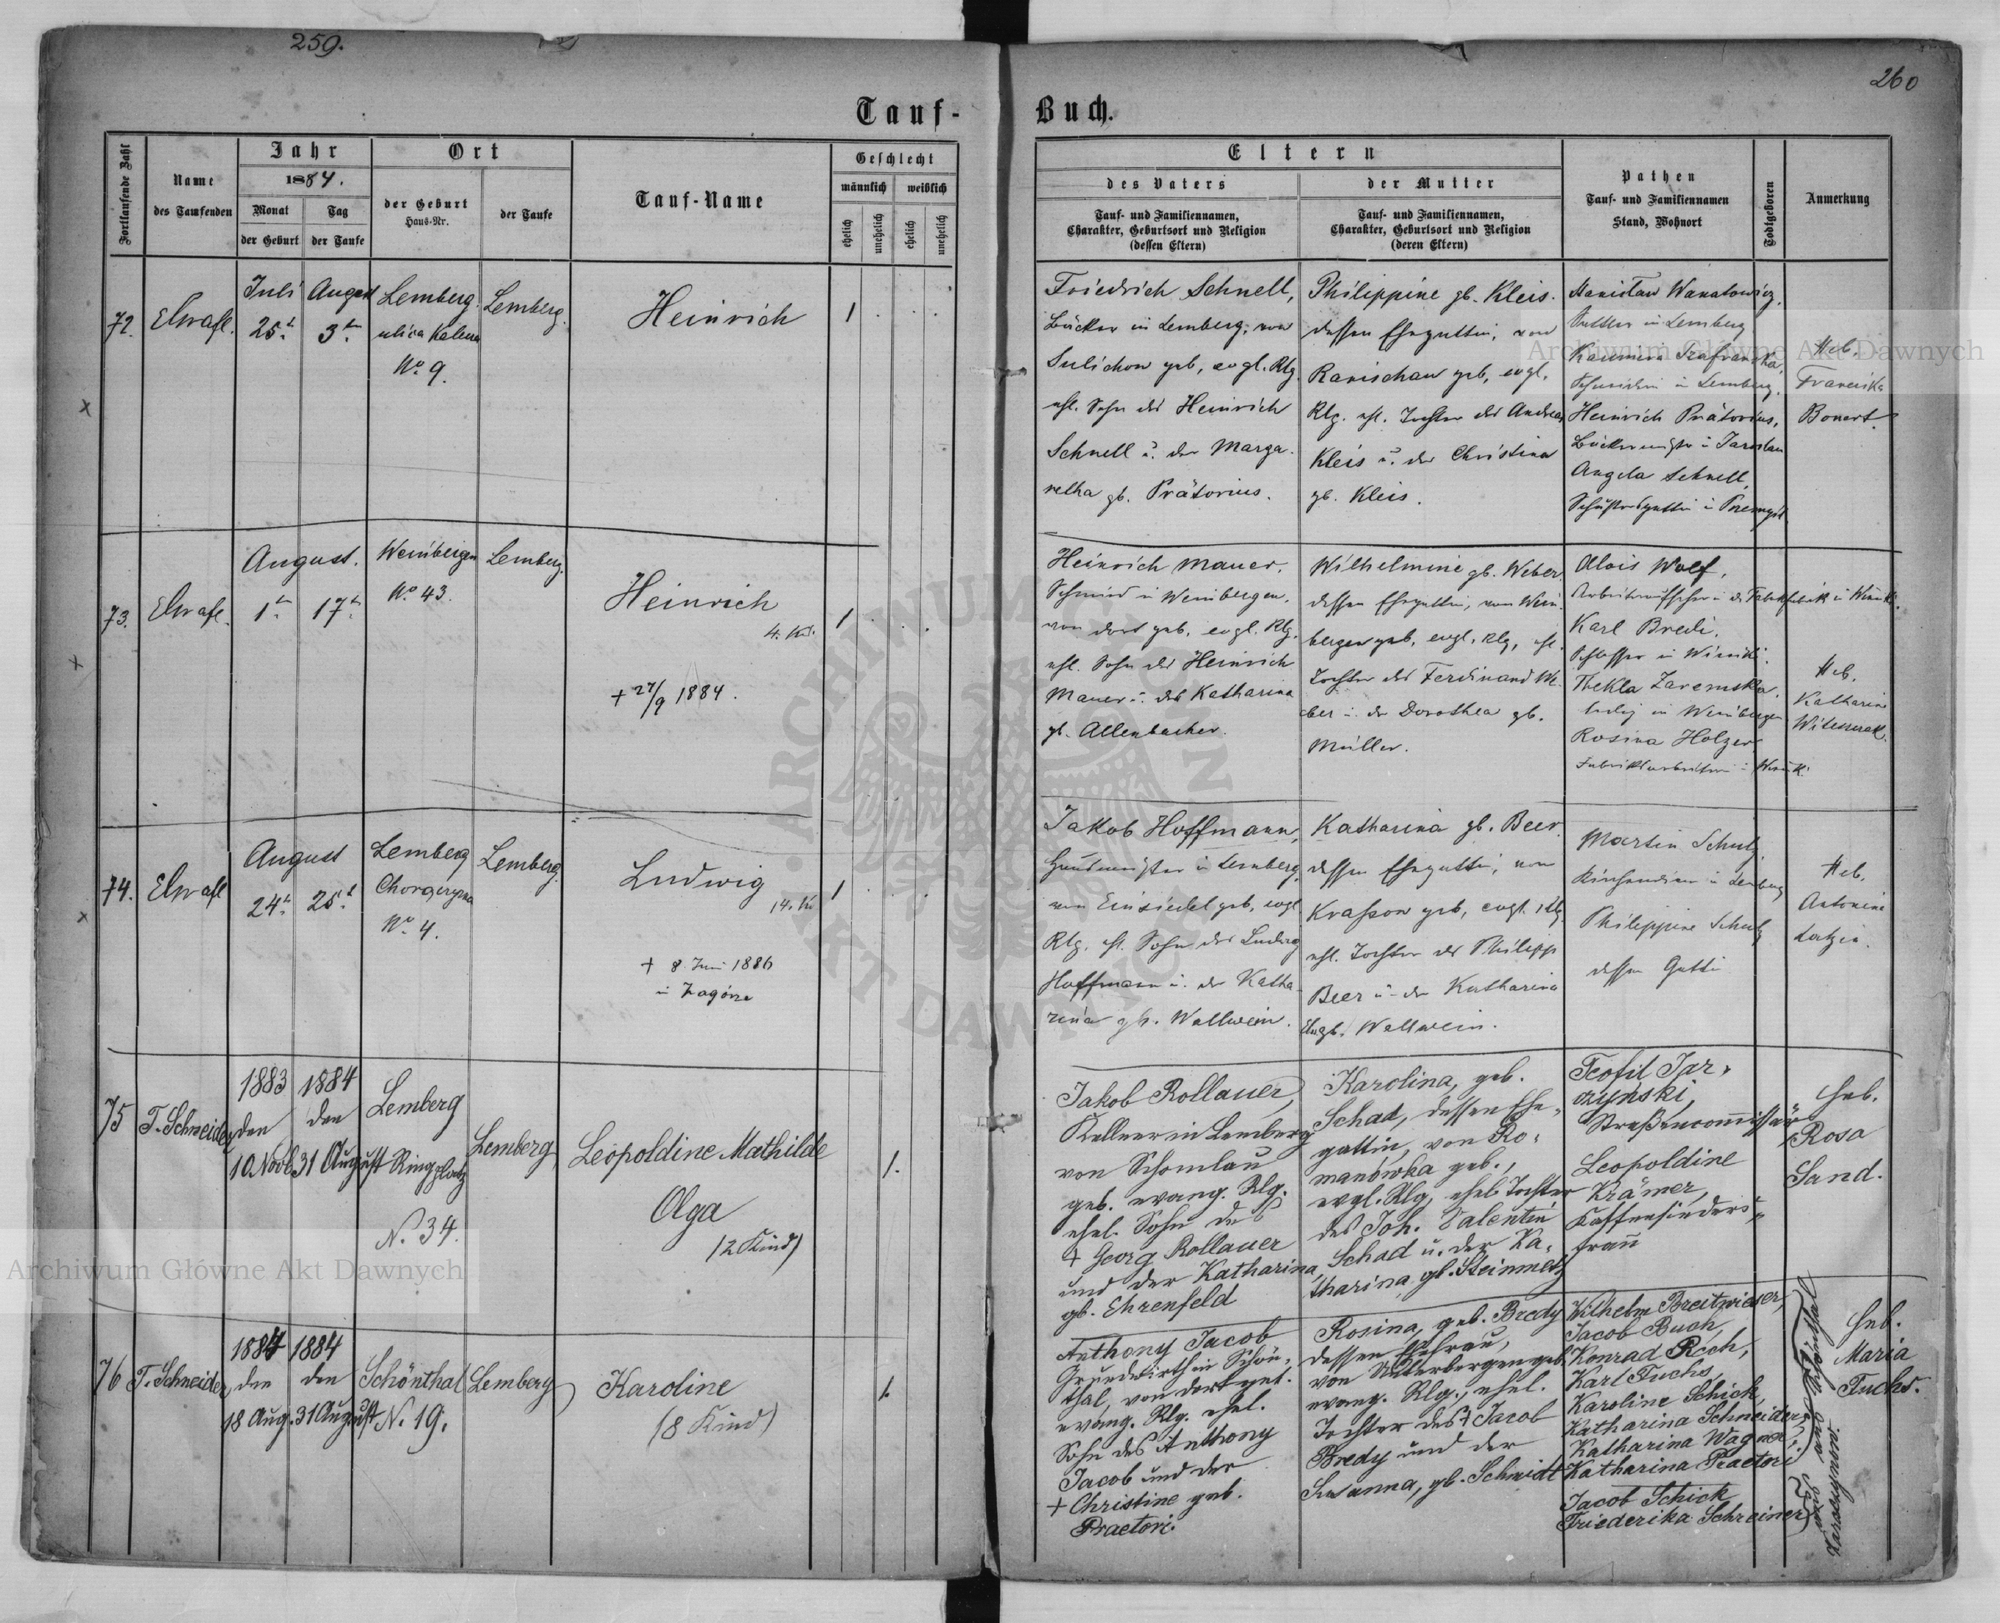 259.
260
Tauf-
Buch.
Fortlaufende Zahl
Name
des Taufenden
Jahr
1884.
Monat
der Geburt
Tag
der Taufe
Ort
der Geburt
Haus-Nr.
der Taufe
Tauf-Name
Geschlecht
männlich
weiblich
ehelich
unehelich
ehelich
unehelich
Eltern
des Vaters
Tauf- und Familiennamen,
Charakter, Geburtsort und Religion
(dessen Eltern)
der Mutter
Tauf- und Familiennamen,
Charakter, Geburtsort und Religion
(deren Eltern)
Pathen
Tauf- und Familiennamen
Stand, Wohnort
Todtgeboren
Anmerkung
72.
Juli
25t.
August
3tn.
Lemberg.
ulica
No. 9.
Lemberg.
Heinrich
1
Friedrich Schnell,
Bäcker in Lemberg, von
Sulichow geb, evgl. Rlg.
ehl. Sohn des Heinrich
Schnell u. der Marga-
retha gb. Prätorius.
Philippine gb. Kleis.
dessen Ehegattin, von
Ranischau geb, evgl.
Rlg. ehl. Tochter des Andreas
Kleis u. der Christina
gb. Kleis.
Stanislaw
Sattler in Lemberg
Kasimira
in Lemberg.
Heinrich Prätorius,
Angela Schnell,
Heb.
Franciska
Bonert.
73.
August.
1tn.
17tn.
Weinbergen
No. 43.
Lemberg.
Heinrich
4. Kd.
+ 27/9 1884.
1
Heinrich Mauer,
Schmied in Weinbergen,
von dort geb, evgl. Rlg.
ehl. Sohn des Heinrich
Mauer u. der Katharina
gb. Allenbacher.
Wilhelmine gb. Weber
dessen Ehegattin, von Wein-
bergen geb, evgl. Rlg, ehl.
Tochter des Ferdinand We-
ber u. der Dorothea gb.
Müller.
Alois Wolf,
Karl Bredi,
Schlosser in Winniki.
Thekla Zaremska,
ledig in Weinbergen
Rosina Holzer,
Heb.
Katharina
74.
August
24tn.
25t.
Lemberg
No. 4.
Lemberg.
Ludwig
14. Kd
+ 8. Juni 1886
in Zagórze
1
Jakob Hoffmann,
in Lemberg,
von Einsiedel geb, evgl
Rlg. ehl. Sohn des Ludwig
Hoffmann u. der Katha-
rina gb. Wallwein.
Katharina gb. Beer.
dessen Ehegattin, von
geb, evgl. Rlg
ehl. Tochter des Philipp
Beer u. der Katharina
gb. Wallwein.
Martin Schulz
Kirchendiener in Lemberg
Philippine Schulz
dessen Gattin
Heb.
Antonina
75
T. Schneider
1883
den
10 Novb
1884
den
31 August
Lemberg
Ringplatz
N. 34.
Lemberg
Leopoldine Mathilde
Olga
(2 Kind)
1.
Jakob Rollauer,
Kellner in Lemberg
von
geb. evang. Rlg.
ehel. Sohn des
+ Georg Rollauer
und der Katharina,
gb. Ehrenfeld
Karolina, geb.
Schad, dessen Ehe-
gattin, von Ro-
manówka geb.,
evgl. Rlg, ehel. Tochter
des Joh. Valentin
Schad u. der Ka-
tharina, gb. Steinmetz
Teofil Jar-
zyński,
Leopoldine
Krämer,
Kaffeesieders-
frau
Heb.
Rosa
Sand.
76
T. Schneider
1884
den
18 Aug.
1884
den
31 August
Schönthal
N. 19.
Lemberg
Karoline
(8 Kind)
1.
Anthony Jacob
Grundwirth in Schön-
thal, von dort get.
evang. Rlg. ehel.
Sohn des Anthony
Jacob und der
+ Christine geb.
Praetori.
Rosina, geb. Bredy
dessen Ehefrau,
von Unterbergen geb.
evang. Rlg., ehel.
Tochter des + Jacob
Bredy und der
Susanna, gb. Schmidt
Wilhelm Breitwieser,
Jacob Buch,
Konrad Roch,
Karl Fuchs,
Karoline Schick,
Katharina Schneider,
Katharina Wagner,
Katharina Praetori
Jacob Schick
Friederika Schreiner
Heb.
Maria
Fuchs.
Archiwum Główne Akt Dawnych
Archiwum Główne Akt Dawnych
ARCHIWUM GŁÓWNE AKT DAWNYCH